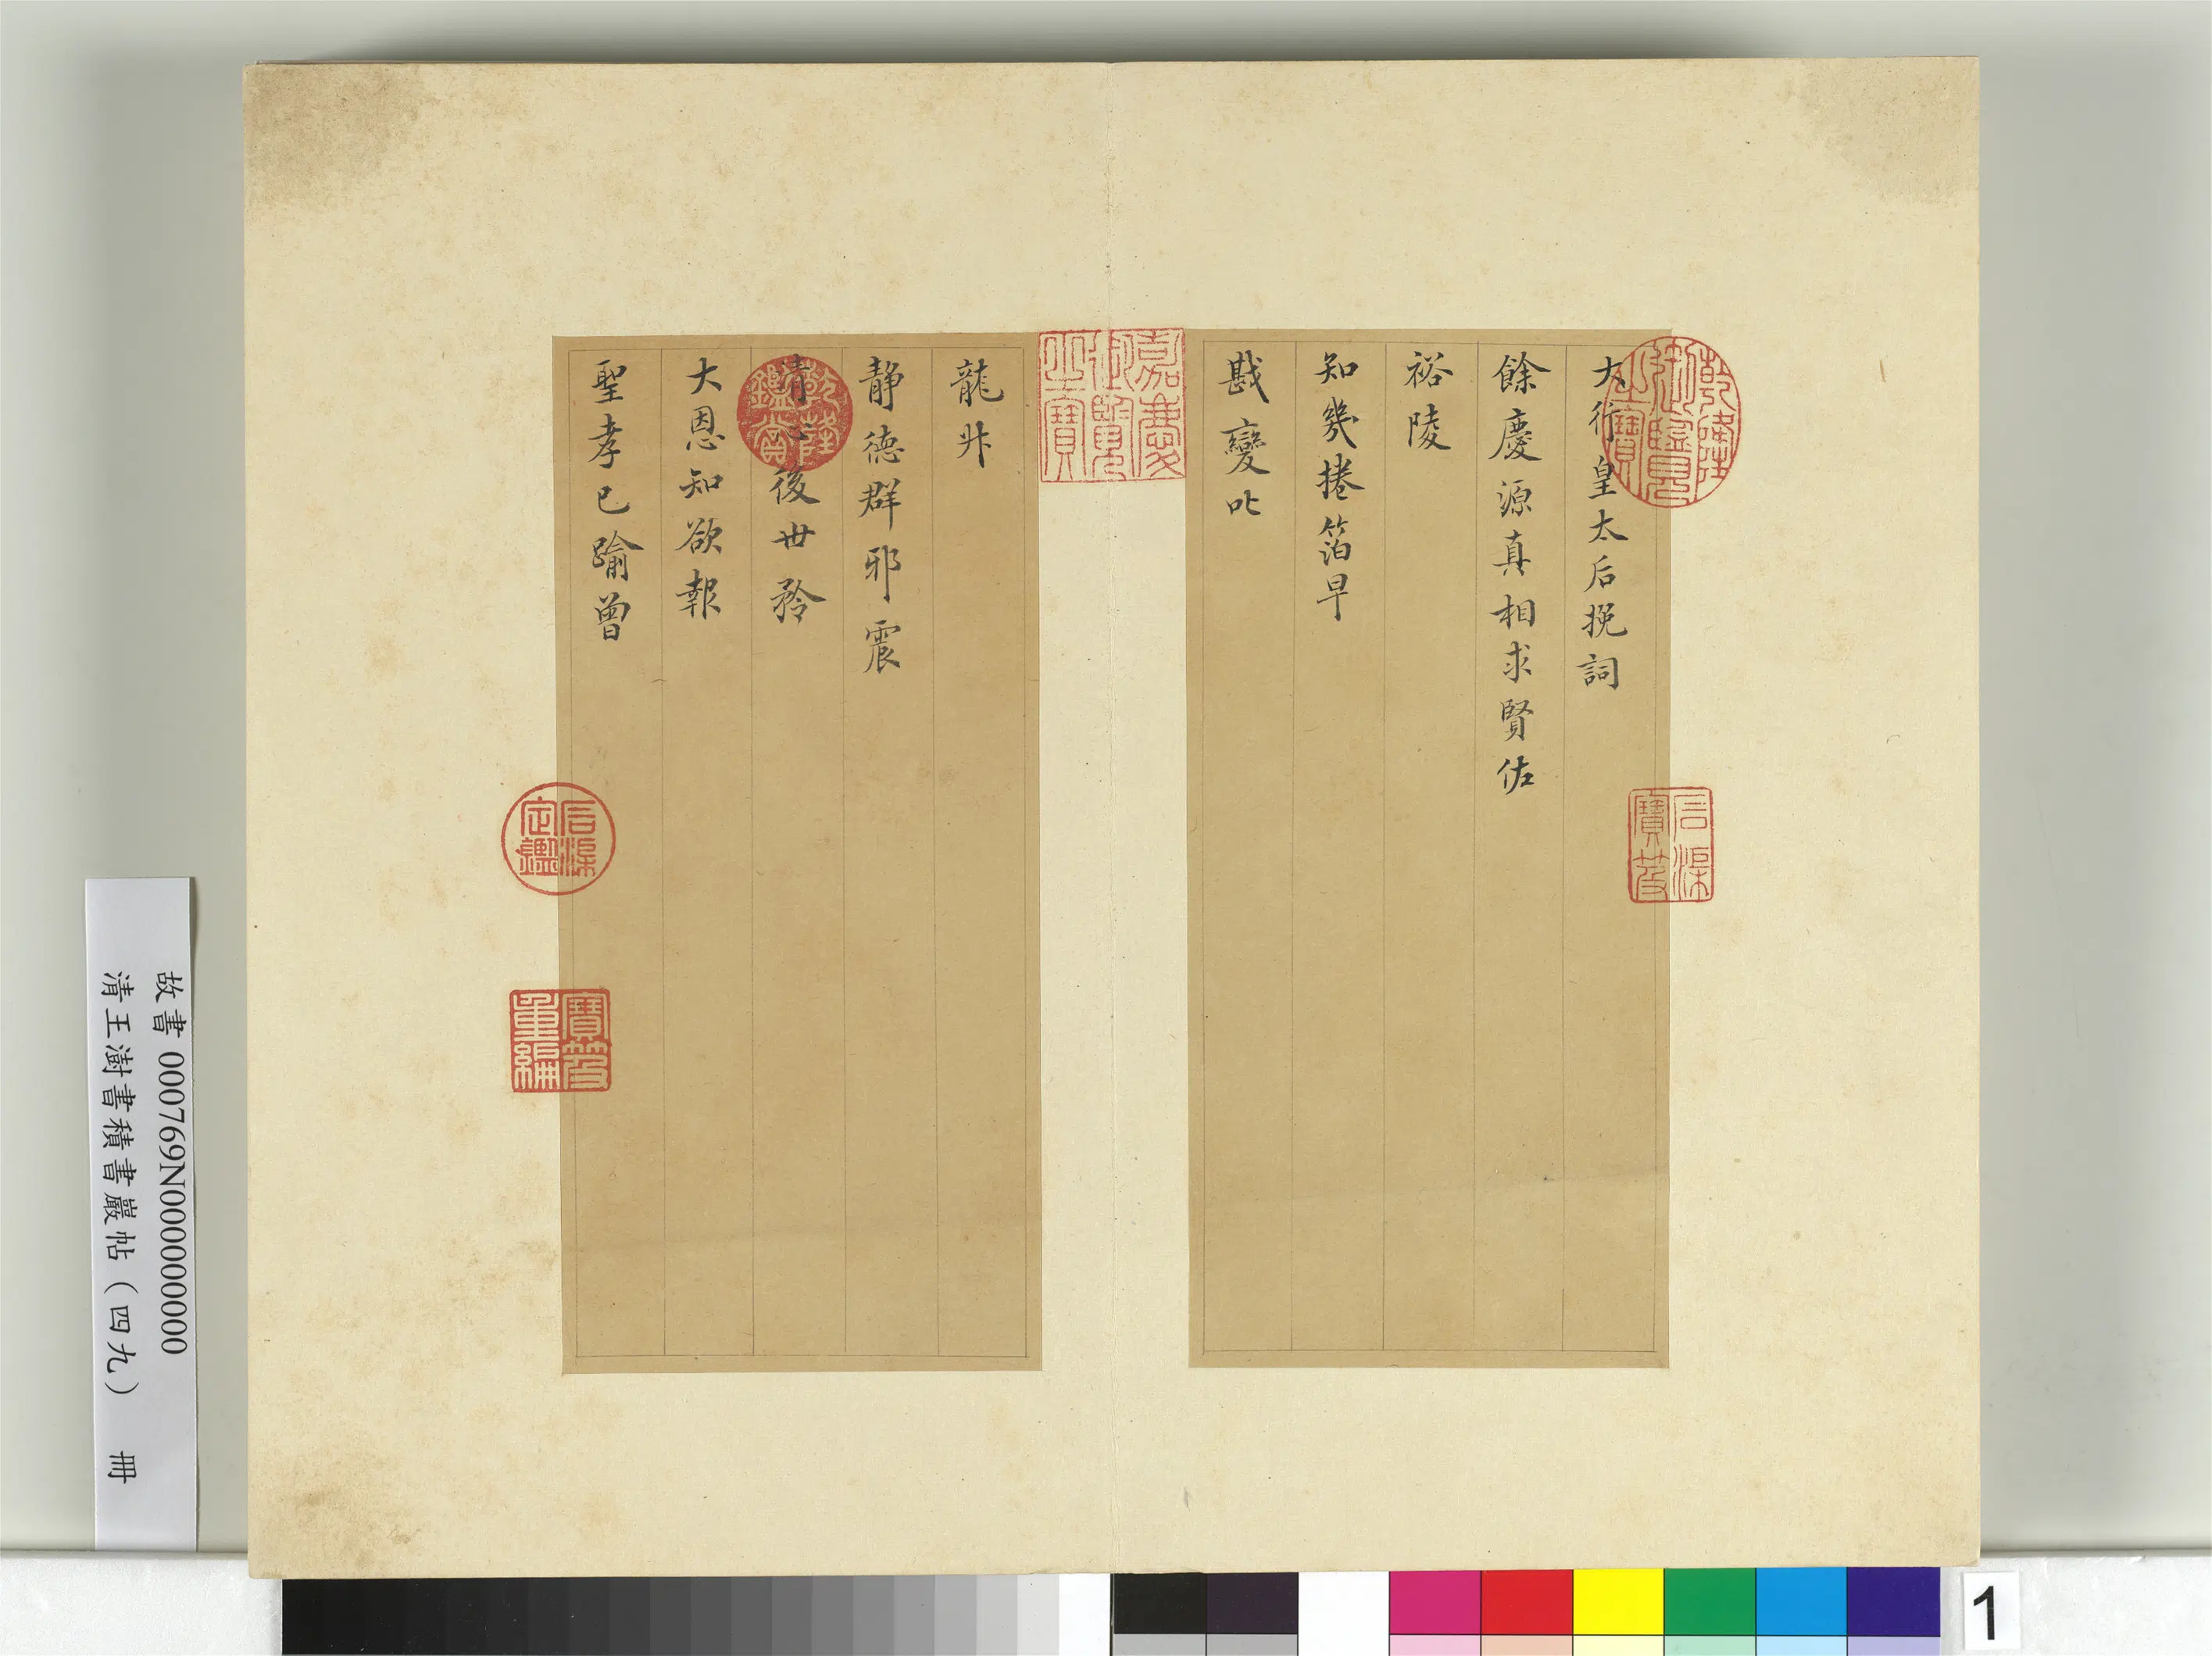 大行皇太后挽詞
餘慶源真相求賢佑
裕陵
知幾捲箔早
戡變叱
龍升
静德群邪震
清心後世矜
大恩知欲報
聖孝已踰曾
乾隆御覽之寶
石渠寶笈
嘉慶御覽之寶
乾隆鑑賞
石渠定鑑
寶笈重編
故書 000769N000000000
清王澍書積書巖帖（四九） 冊
1